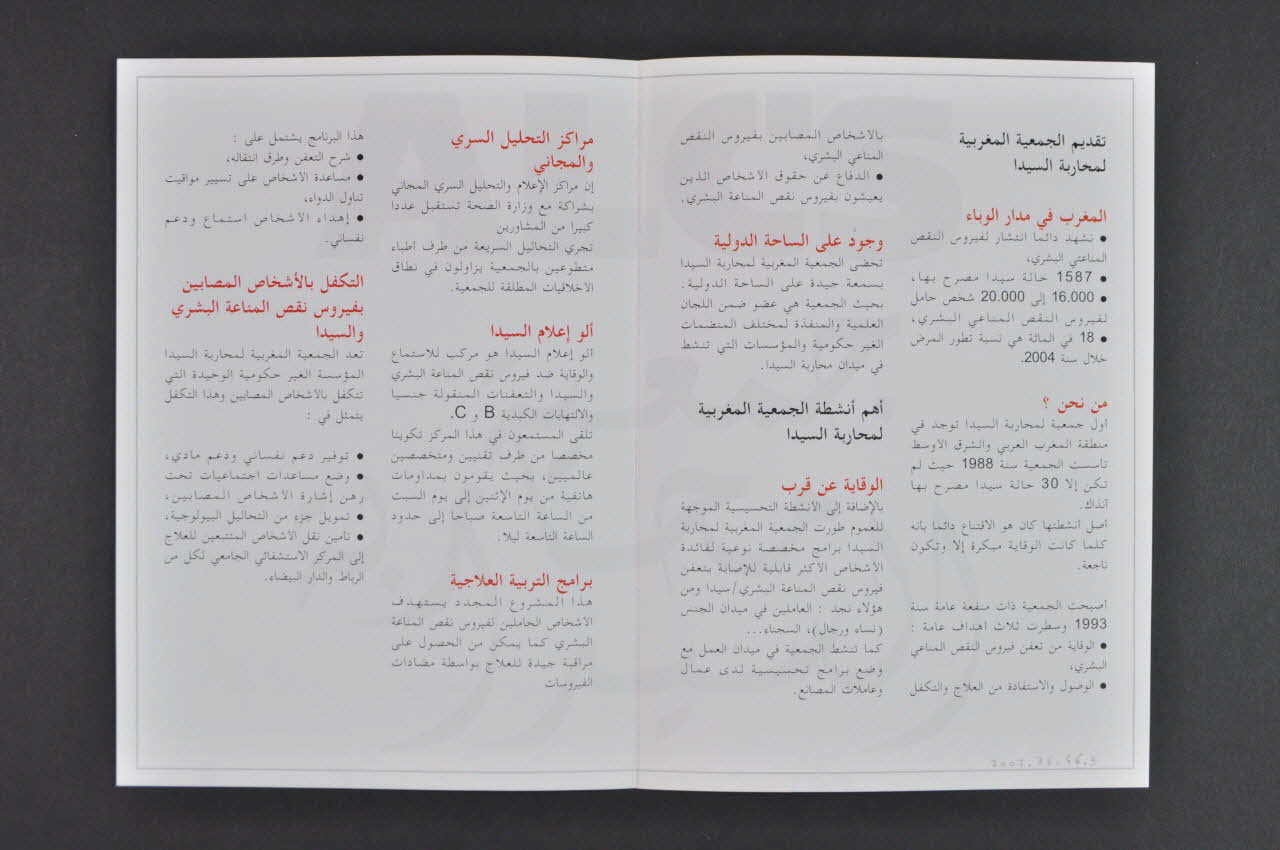 تقديم الجمعية المغربية
لمحاربة السيدا
المغرب في مدار الوباء
● نشهد دائما انتشار لفيروس النقص
المناعتي البشري،
● 1587 حالة سيدا مصرح بها،
● 16.000 إلى 20.000 شخص حامل
لفيروس النقص المناعي البشري،
● 18 في المائة هي نسبة تطور المرض
خلال سنة 2004.
من نحن ؟
أول جمعية لمحاربة السيدا توجد في
منطقة المغرب العربي والشرق الأوسط
تأسست الجمعية سنة 1988 حيث لم
تكن إلا 30 حالة سيدا مصرح بها
آنذاك.
أصل أنشطتها كان هو الاقتناع دائما بأنه
كلما كانت الوقاية مبكرة إلا وتكون
ناجعة.
أصبحت الجمعية ذات منفعة عامة سنة
1993 وسطرت ثلاث أهداف عامة :
● الوقاية من تعفن فيروس النقص المناعي
البشري،
● الوصول والاستفادة من العلاج والتكفل
بالأشخاص المصابين بفيروس النقص
المناعي البشري،
● الدفاع عن حقوق الأشخاص الذين
يعيشون بفيروس نقص المناعة البشري.
وجودٌ على الساحة الدولية
تحضى الجمعية المغربية لمحاربة السيدا
بسمعة جيدة على الساحة الدولية.
بحيث الجمعية هي عضو ضمن اللجان
العلمية والمنفذة لمختلف المنضمات
الغير حكومية والمؤسسات التي تنشط
في ميدان محاربة السيدا.
أهم أنشطة الجمعية المغربية
لمحاربة السيدا
الوقاية عن قرب
بالإضافة إلى الأنشطة التحسيسية الموجهة
للعموم طورت الجمعية المغربية لمحاربة
السيدا برامج مخصصة نوعية لفائدة
الأشخاص الأكثر قابلية للإصابة بتعفن
فيروس نقص المناعة البشري/سيدا ومن
هؤلاء نجد : العاملين في ميدان الجنس
(نساء ورجال)، السجناء...
كما تنشط الجمعية في ميدان العمل مع
وضع برامج تحسيسية لدى عمال
وعاملات المصانع.
مراكز التحليل السري
والمجاني
إن مراكز الإعلام والتحليل السري المجاني
بشراكة مع وزارة الصحة تستقبل عددا
كبيرا من المشاورين
تجري التحاليل السريعة من طرف أطباء
متطوعين بالجمعية يزاولون في نطاق
الأخلاقيات المطلقة للجمعية.
ألو إعلام السيدا
ألو إعلام السيدا هو مركب للاستماع
والوقاية ضد فيروس نقص المناعة البشري
والسيدا والتعفنات المنقولة جنسيا
والالتهابات الكبدية B و C.
تلقى المستمعون في هذا المركز تكوينا
مخصصا من طرف تقنيين ومتخصصين
عالميين، بحيث يقومون بمداومات
هاتفية من يوم الإثنين إلى يوم السبت
من الساعة التاسعة صباحا إلى حدود
الساعة التاسعة ليلا.
برامج التربية العلاجية
هذا المشروع المجدد يستهدف
الأشخاص الحاملين لفيروس نقص المناعة
البشري كما يمكن من الحصول على
مراقبة جيدة للعلاج بواسطة مضادات
الفيروسات
هذا البرنامج يشتمل على :
● شرح التعفن وطرق انتقاله،
● مساعدة الأشخاص على تسيير مواقيت
تناول الدواء،
● إهداء الأشخاص استماع ودعم
نفساني.
التكفل بالأشخاص المصابين
بفيروس نقص المناعة البشري
والسيدا
تعد الجمعية المغربية لمحاربة السيدا
المؤسسة الغير حكومية الوحيدة التي
تتكفل بالأشخاص المصابين وهذا التكفل
يتمثل في :
● توفير دعم نفساني ودعم مادي،
● وضع مساعدات اجتماعيات تحت
رهن إشارة الأشخاص المصابين،
● تمويل جزء من التحاليل البيولوجية،
● تأمين نقل الأشخاص المتتبعين للعلاج
إلى المركز الاستشفائي الجامعي لكل من
الرباط والدار البيضاء.